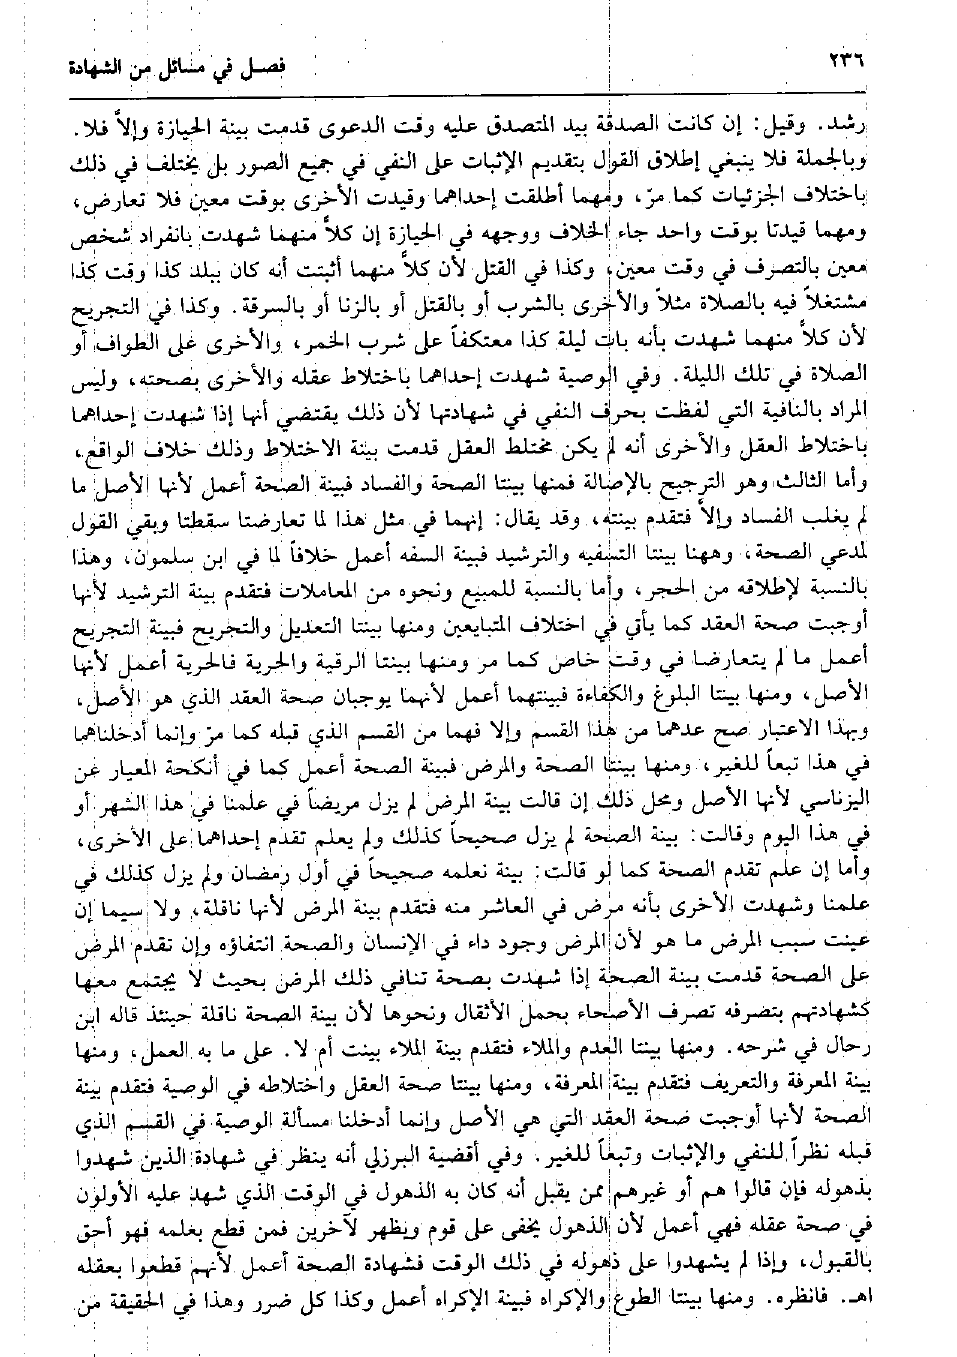 ٢٣٦
فصل في مسائل من الشهادة
رشد. وقيل: إن كانت الصدقة بيد المتصدق عليه وقت الدعوى قدمت بينة الحيازة وإلاَّ فلا.
وبالجملة فلا ينبغي إطلاق القول بتقديم الإثبات على النفي في جميع الصور بل يختلف في ذلك
باختلاف الجزئيات كما مرّ، ومهما أطلقت إحداهما وقيدت الأخرى بوقت معين فلا تعارض،
ومهما قيدتا بوقت واحد جاء الخلاف ووجهه في الحيازة إن كلاًّ منهما شهدت بانفراد شخص
معين بالتصرف في وقت معين، وكذا في القتل لأن كلاًّ منهما أثبتت أنه كان ببلد كذا وقت كذا
مشتغلاً فيه بالصلاة مثلاً والأخرى بالشرب أو بالقتل أو بالزنا أو بالسرقة. وكذا في التجريح
لأن كلاًّ منهما شهدت بأنه بات ليلة كذا معتكفاً على شرب الخمر، والأخرى على الطواف أو
الصلاة في تلك الليلة. وفي الوصية شهدت إحداهما باختلاط عقله والأخرى بصحته، وليس
المراد بالنافية التي لفظت بحرف النفي في شهادتها لأن ذلك يقتضي أنها إذا شهدت إحداهما
باختلاط العقل والأخرى أنه لم يكن مختلط العقل قدمت بينة الاختلاط وذلك خلاف الواقع،
وأما الثالث وهو الترجيح بالإصالة فمنها بينتا الصحة والفساد فبينة الصحة أعمل لأنها الأصل ما
لم يغلب الفساد وإلاَّ فتقدم بينته، وقد يقال: إنهما في مثل هذا لما تعارضتا سقطتا وبقي القول
لمدعي الصحة، وههنا بينتا التسفيه والترشيد فبينة السفه أعمل خلافاً لما في ابن سلمون، وهذا
بالنسبة لإطلاقه من الحجر، وأما بالنسبة للمبيع ونحوه من المعاملات فتقدم بينة الترشيد لأنها
أوجبت صحة العقد كما يأتي في اختلاف المتبايعين ومنها بينتا التعديل والتجريح فبينة التجريح
أعمل ما لم يتعارضا في وقت خاص كما مر ومنها بينتا الرقية والحرية فالحرية أعمل لأنها
الأصل، ومنها بينتا البلوغ والكفاءة فبينتهما أعمل لأنهما يوجبان صحة العقد الذي هو الأصل،
وبهذا الاعتبار صح عدهما من هذا القسم وإلا فهما من القسم الذي قبله كما مرّ وإنما أدخلناهما
في هذا تبعاً للغير، ومنها بينتا الصحة والمرض فبينة الصحة أعمل كما في أنكحة المعيار عن
اليزناسي لأنها الأصل ومحل ذلك إن قالت بينة المرض لم يزل مريضاً في علمنا في هذا الشهر أو
في هذا اليوم وقالت: بينة الصحة لم يزل صحيحاً كذلك ولم يعلم تقدم إحداهما على الأخرى،
وأما إن علم تقدم الصحة كما لو قالت: بينة نعلمه صحيحاً في أول رمضان ولم يزل كذلك في
علمنا وشهدت الأخرى بأنه مرض في العاشر منه فتقدم بينة المرض لأنها ناقلة، ولا سيما إن
عينت سبب المرض ما هو لأن المرض وجود داء في الإنسان والصحة انتفاؤه وإن تقدم المرض
على الصحة قدمت بينة الصحة إذا شهدت بصحة تنافي ذلك المرض بحيث لا يجتمع معها
كشهادتهم بتصرفه تصرف الأصحاء بحمل الأثقال ونحوها لأن بينة الصحة ناقلة حينئذ قاله ابن
رحال في شرحه. ومنها بينتا العدم والملاء فتقدم بينة الملاء بينت أم لا. على ما به العمل، ومنها
بينة المعرفة والتعريف فتقدم بينة المعرفة، ومنها بينتا صحة العقل واختلاطه في الوصية فتقدم بينة
الصحة لأنها أوجبت صحة العقد التي هي الأصل وإنما أدخلنا مسألة الوصية في القسم الذي
قبله نظراً للنفي والإثبات وتبعاً للغير. وفي أقضية البرزلي أنه ينظر في شهادة الذين شهدوا
بذهوله فإن قالوا هم أو غيرهم ممن يقبل أنه كان به الذهول في الوقت الذي شهد عليه الأولون
في صحة عقله فهي أعمل لأن الذهول يخفى على قوم ويظهر لآخرين فمن قطع بعلمه فهو أحق
بالقبول، وإذا لم يشهدوا على ذهوله في ذلك الوقت فشهادة الصحة أعمل لأنهم قطعوا بعقله
اهـ. فانظره. ومنها بينتا الطوع والإكراه فبينة الإكراه أعمل وكذا كل ضرر وهذا في الحقيقة من